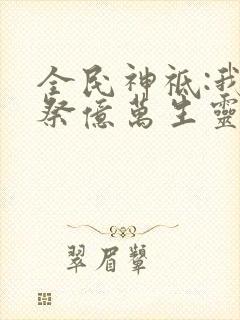 全民神祇:我
祭億萬生靈
翠眉顰